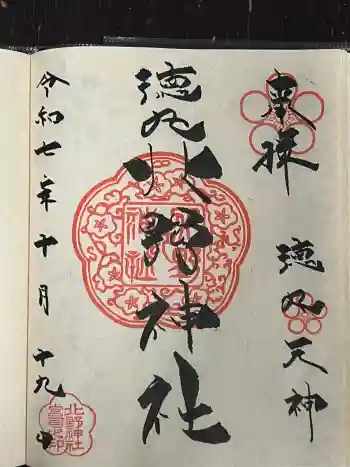 奉拝
徳丸天神
徳丸北野神社
令和七年十月十九日
北野神社
宮司之印